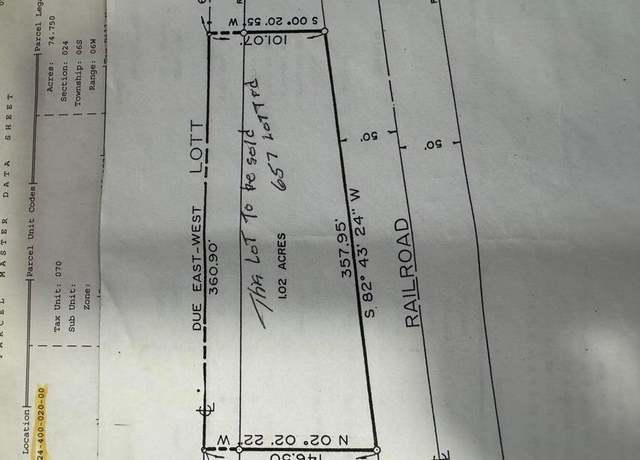 PARCEL MASTER DATA SHEET
Location
24-400-020-00
Parcel Unit Codes
Tax Unit: 070
Sub Unit:
Zone:
Parcel Lega
Acres: 74.750
Section: 024
Township: 06S
Range: 06W
DUE EAST-WEST LOTT
360.90'
This LOT To be sold
657 LOTT rd
1.02 ACRES
S 00° 20' 55" W
101.07'
357.95'
S 82° 43' 24" W
N 02° 02' 22" W
146.50
RAILROAD
50'
50'